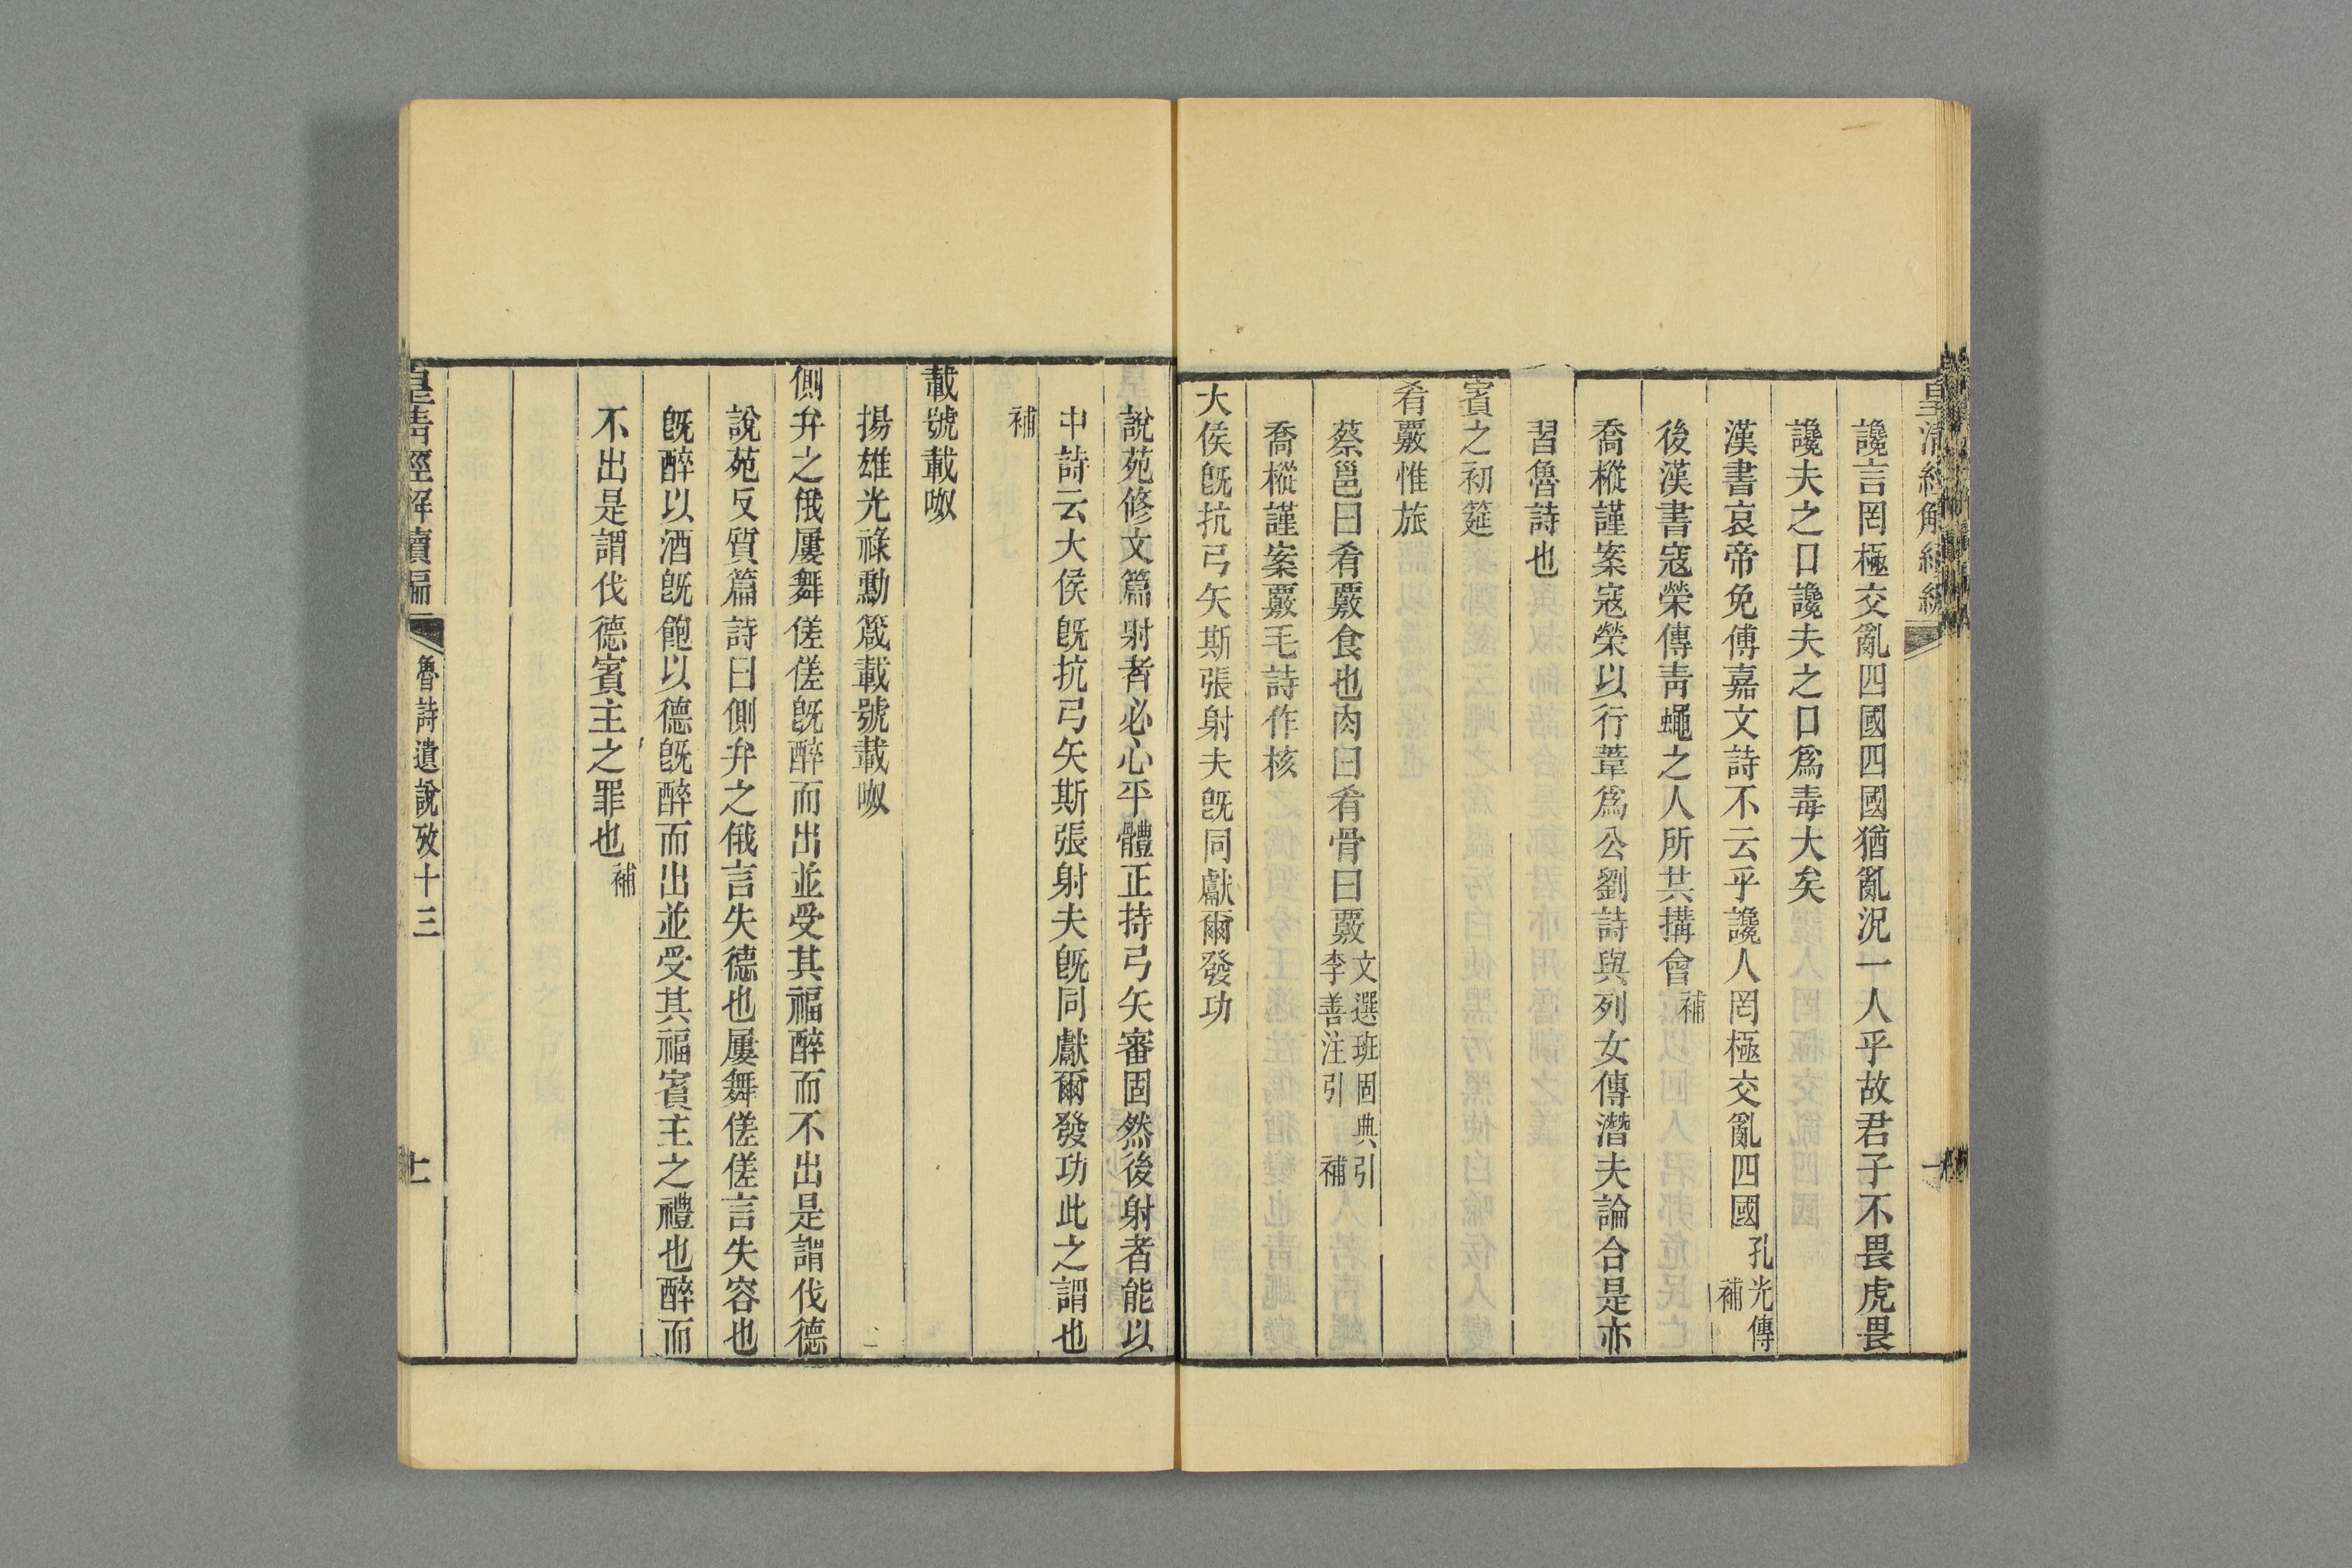 讒言罔極交亂四國四國猶亂況一人乎故君子不畏虎畏
讒夫之口讒夫之口爲毒大矣
漢書哀帝免傅嘉文詩不云乎讒人罔極交亂四國孔光傳補
後漢書寇榮傳靑蠅之人所共搆會補
喬樅謹案寇榮以行葦爲公劉詩與列女傳潛夫論合是亦
習魯詩也
賓之初筵
肴覈惟旅
蔡邕曰肴覈食也肉曰肴骨曰覈文選班固典引李善注引補
喬樅謹案覈毛詩作核
大侯旣抗弓矢斯張射夫旣同獻爾發功
說苑修文篇射者必心平體正持弓矢審固然後射者能以
中詩云大侯旣抗弓矢斯張射夫旣同獻爾發功此之謂也
補
載號載呶
揚雄光祿勳箴載號載呶
側弁之俄屢舞傞傞旣醉而出並受其福醉而不出是謂伐德
說苑反質篇詩曰側弁之俄言失德也屢舞傞傞言失容也
旣醉以酒旣飽以德旣醉而出並受其福賓主之禮也醉而
不出是謂伐德賓主之罪也補
皇淸經解續編
魯詩遺說攷十三